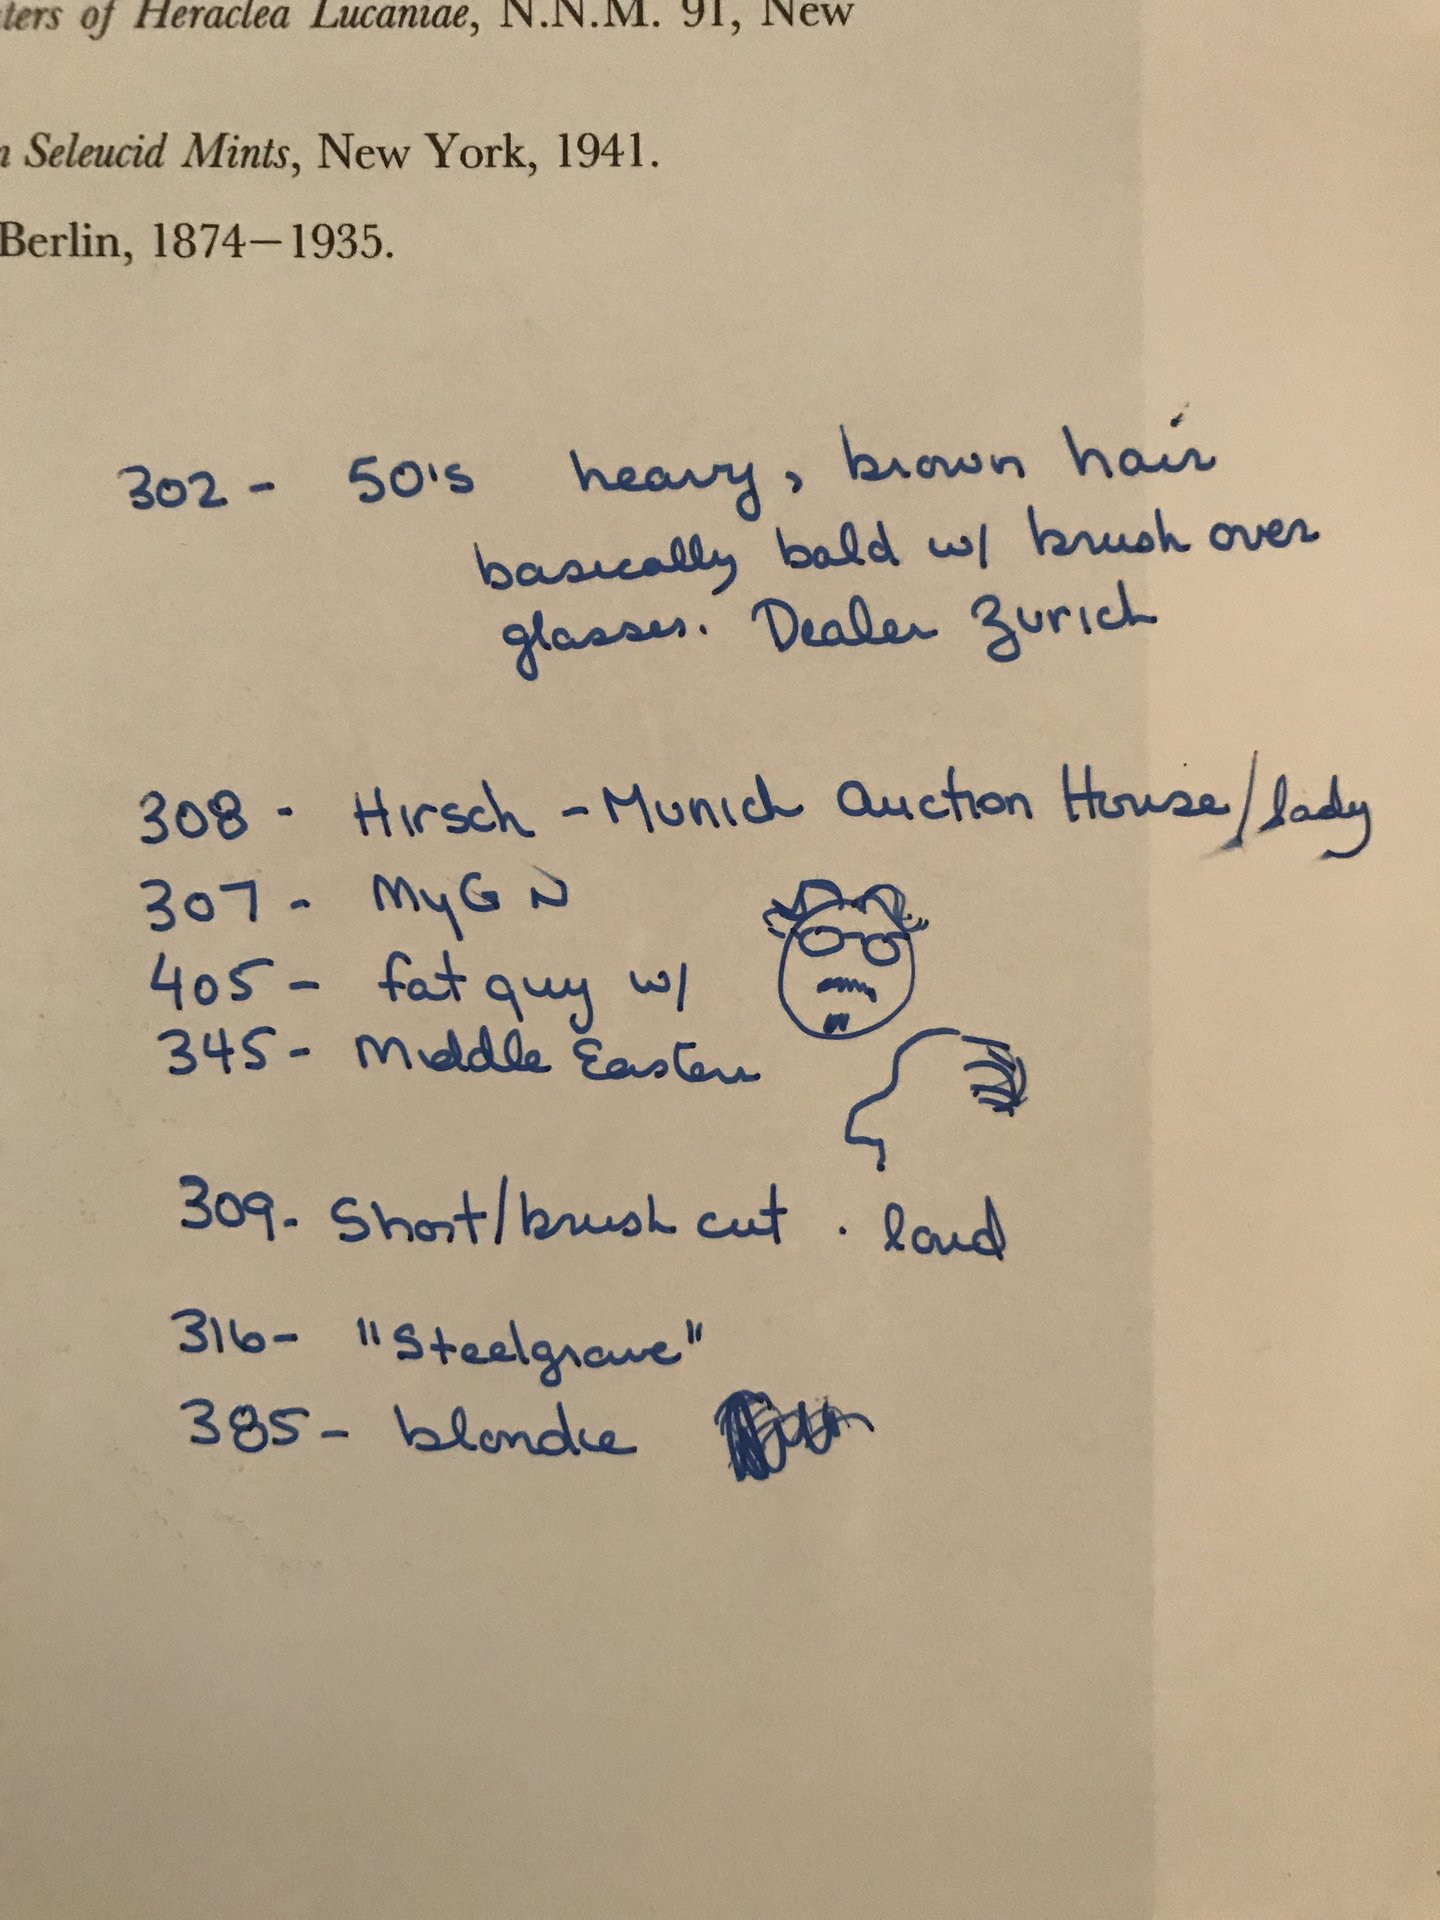 ters of Heraclea Lucaniae, N.N.M. 91, New
n Seleucid Mints, New York, 1941.
Berlin, 1874–1935.
302 - 50's heavy, brown hair
basically bald w/ brush over
glasses. Dealer Zurich
308 - Hirsch - Munich Auction House/lady
307 - MyGN
405 - fat guy w/
345 - Middle Eastern
309 - Short/brush cut . loud
316 - "Steelgrave"
385 - blondie